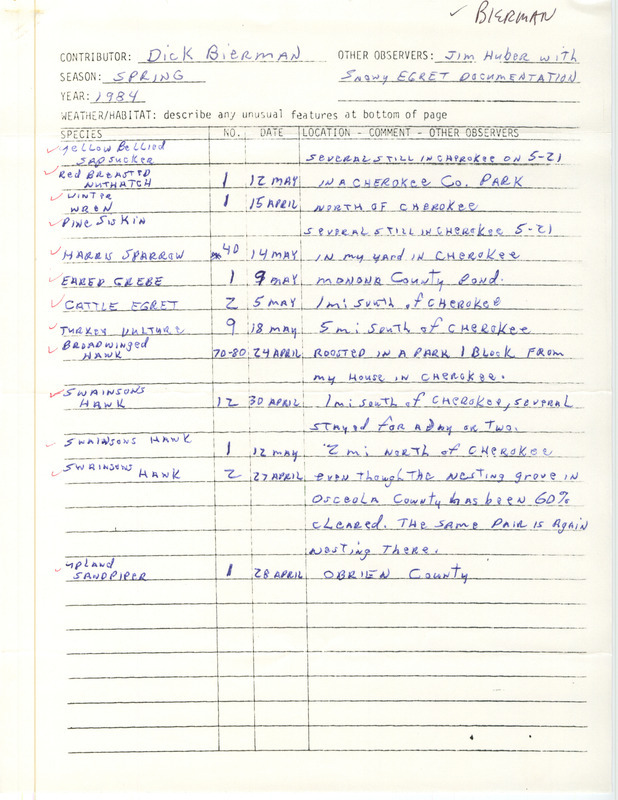 ✓ BIERMAN
CONTRIBUTOR: Dick Bierman OTHER OBSERVERS: Jim Huber with
SEASON: SPRING Snowy EGRET DOCUMENTATION
YEAR: 1984
WEATHER/HABITAT: describe any unusual features at bottom of page
SPECIES NO. DATE LOCATION - COMMENT - OTHER OBSERVERS
✓ Yellow Bellied
SAPSUCKER SEVERAL STILL IN CHEROKEE ON 5-21
✓ Red BREASTED
NUTHATCH 1 12 MAY IN A CHEROKEE Co. PARK
✓ WINTER
WREN 1 15 APRIL NORTH OF CHEROKEE
✓ PINE SISKIN
SEVERAL STILL IN CHEROKEE 5-21
✓ HARRIS SPARROW 40 14 MAY IN my YARD IN CHEROKEE
✓ EARED GREBE 1 9 MAY MONONA County Pond.
✓ CATTLE EGRET 2 5 MAY 1 mi South of CHEROKEE
✓ TURKEY VULTURE 9 18 MAY 5 mi South of CHEROKEE
✓ BROADWINGED
HAWK 70-80 24 APRIL ROOSTED IN A PARK 1 BLOCK FROM
my House in CHEROKEE.
✓ SWAINSONS
HAWK 12 30 APRIL 1 mi South of CHEROKEE, SEVERAL
STAYED FOR A DAY OR TWO.
✓ SWAINSONS HAWK
1 12 MAY 2 mi NORTH of CHEROKEE
✓ SWAINSONS
HAWK 2 27 APRIL even though THE NESTING grove IN
OSCEOLA County has been 60%
CLEARED. THE SAME PAIR IS Again
NESTING THERE.
✓ UPLAND
SANDPIPER 1 28 APRIL OBRIEN COUNTY